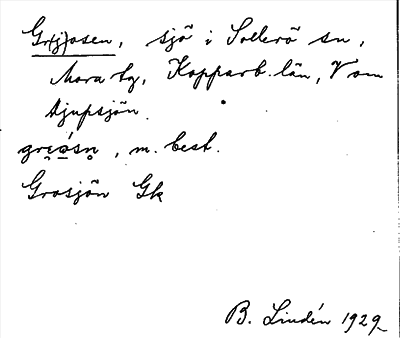 Gr(j)osen, sjö i Sollerö sn,
Mora tg, Kopparb. län, V om
Djupsjön.
gre̯ǫ́sn̥, m. best.
Grosjön Gk
B. Lindén 1929